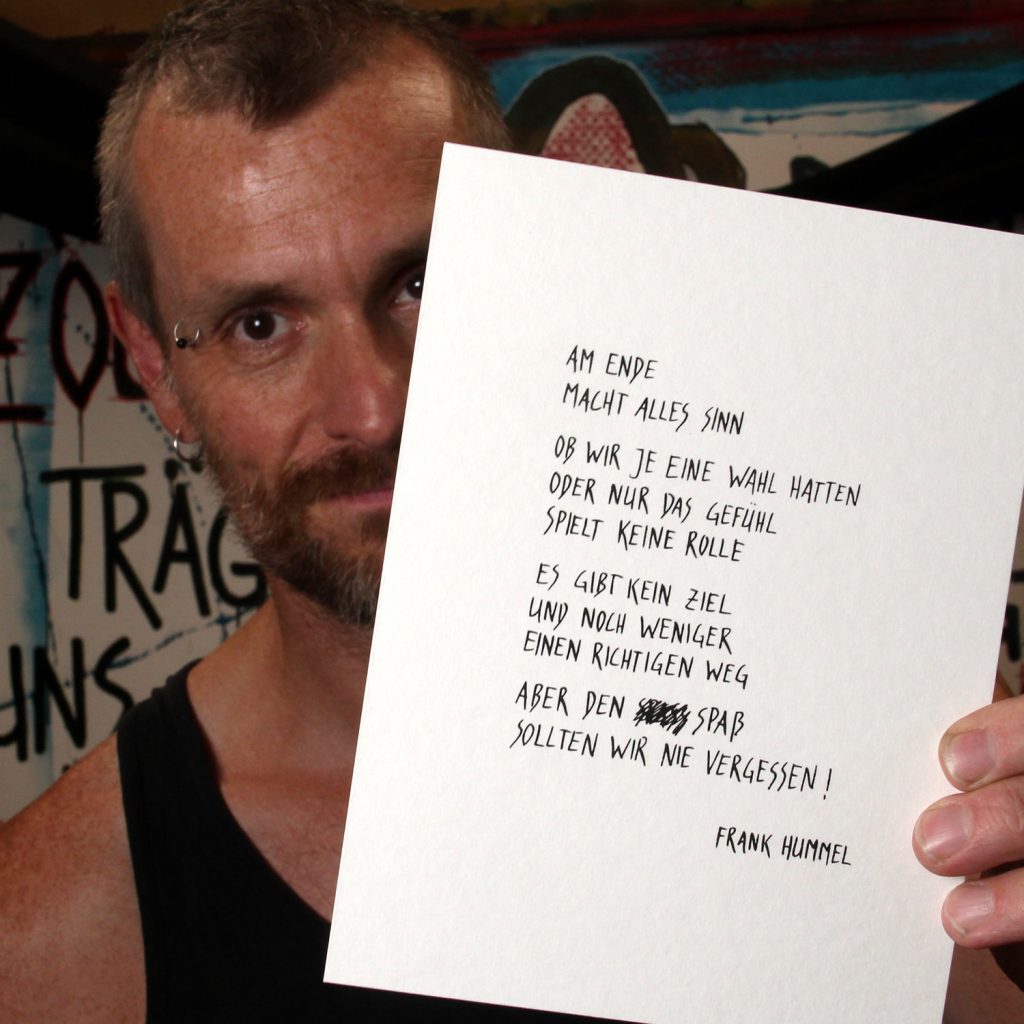 TRÄG
UNS
AM ENDE
MACHT ALLES SINN
OB WIR JE EINE WAHL HATTEN
ODER NUR DAS GEFÜHL
SPIELT KEINE ROLLE
ES GIBT KEIN ZIEL
UND NOCH WENIGER
EINEN RICHTIGEN WEG
ABER DEN SPAß
SOLLTEN WIR NIE VERGESSEN!
FRANK HUMMEL